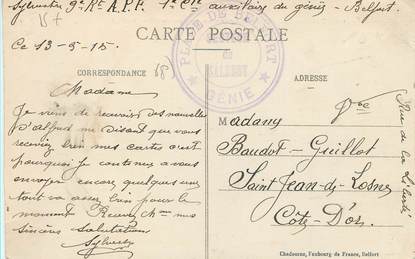 Sylvestre 9e Rt A.P.P. 1e Bie auxiliaire du génie - Belfort
CARTE POSTALE
PLACE DE BELFORT
GÉNIE
Ce 13-9-15.
CORRESPONDANCE
ADRESSE
Madame
Je viens de recevoir des nouvelles
d'alfred me disant que vous
receviez bien mes cartes c'est
pourquoi Je continue a vous
envoyer encore quelques unes
tout va assez bien pour le
moment Recevez Mme mes
sincères salutations
Sylvestre
Madame
Baudot-Guillot
Saint Jean-de-Losne
Côte-D'or
Rue de la Liberté
Chadourne, Faubourg de France, Belfort